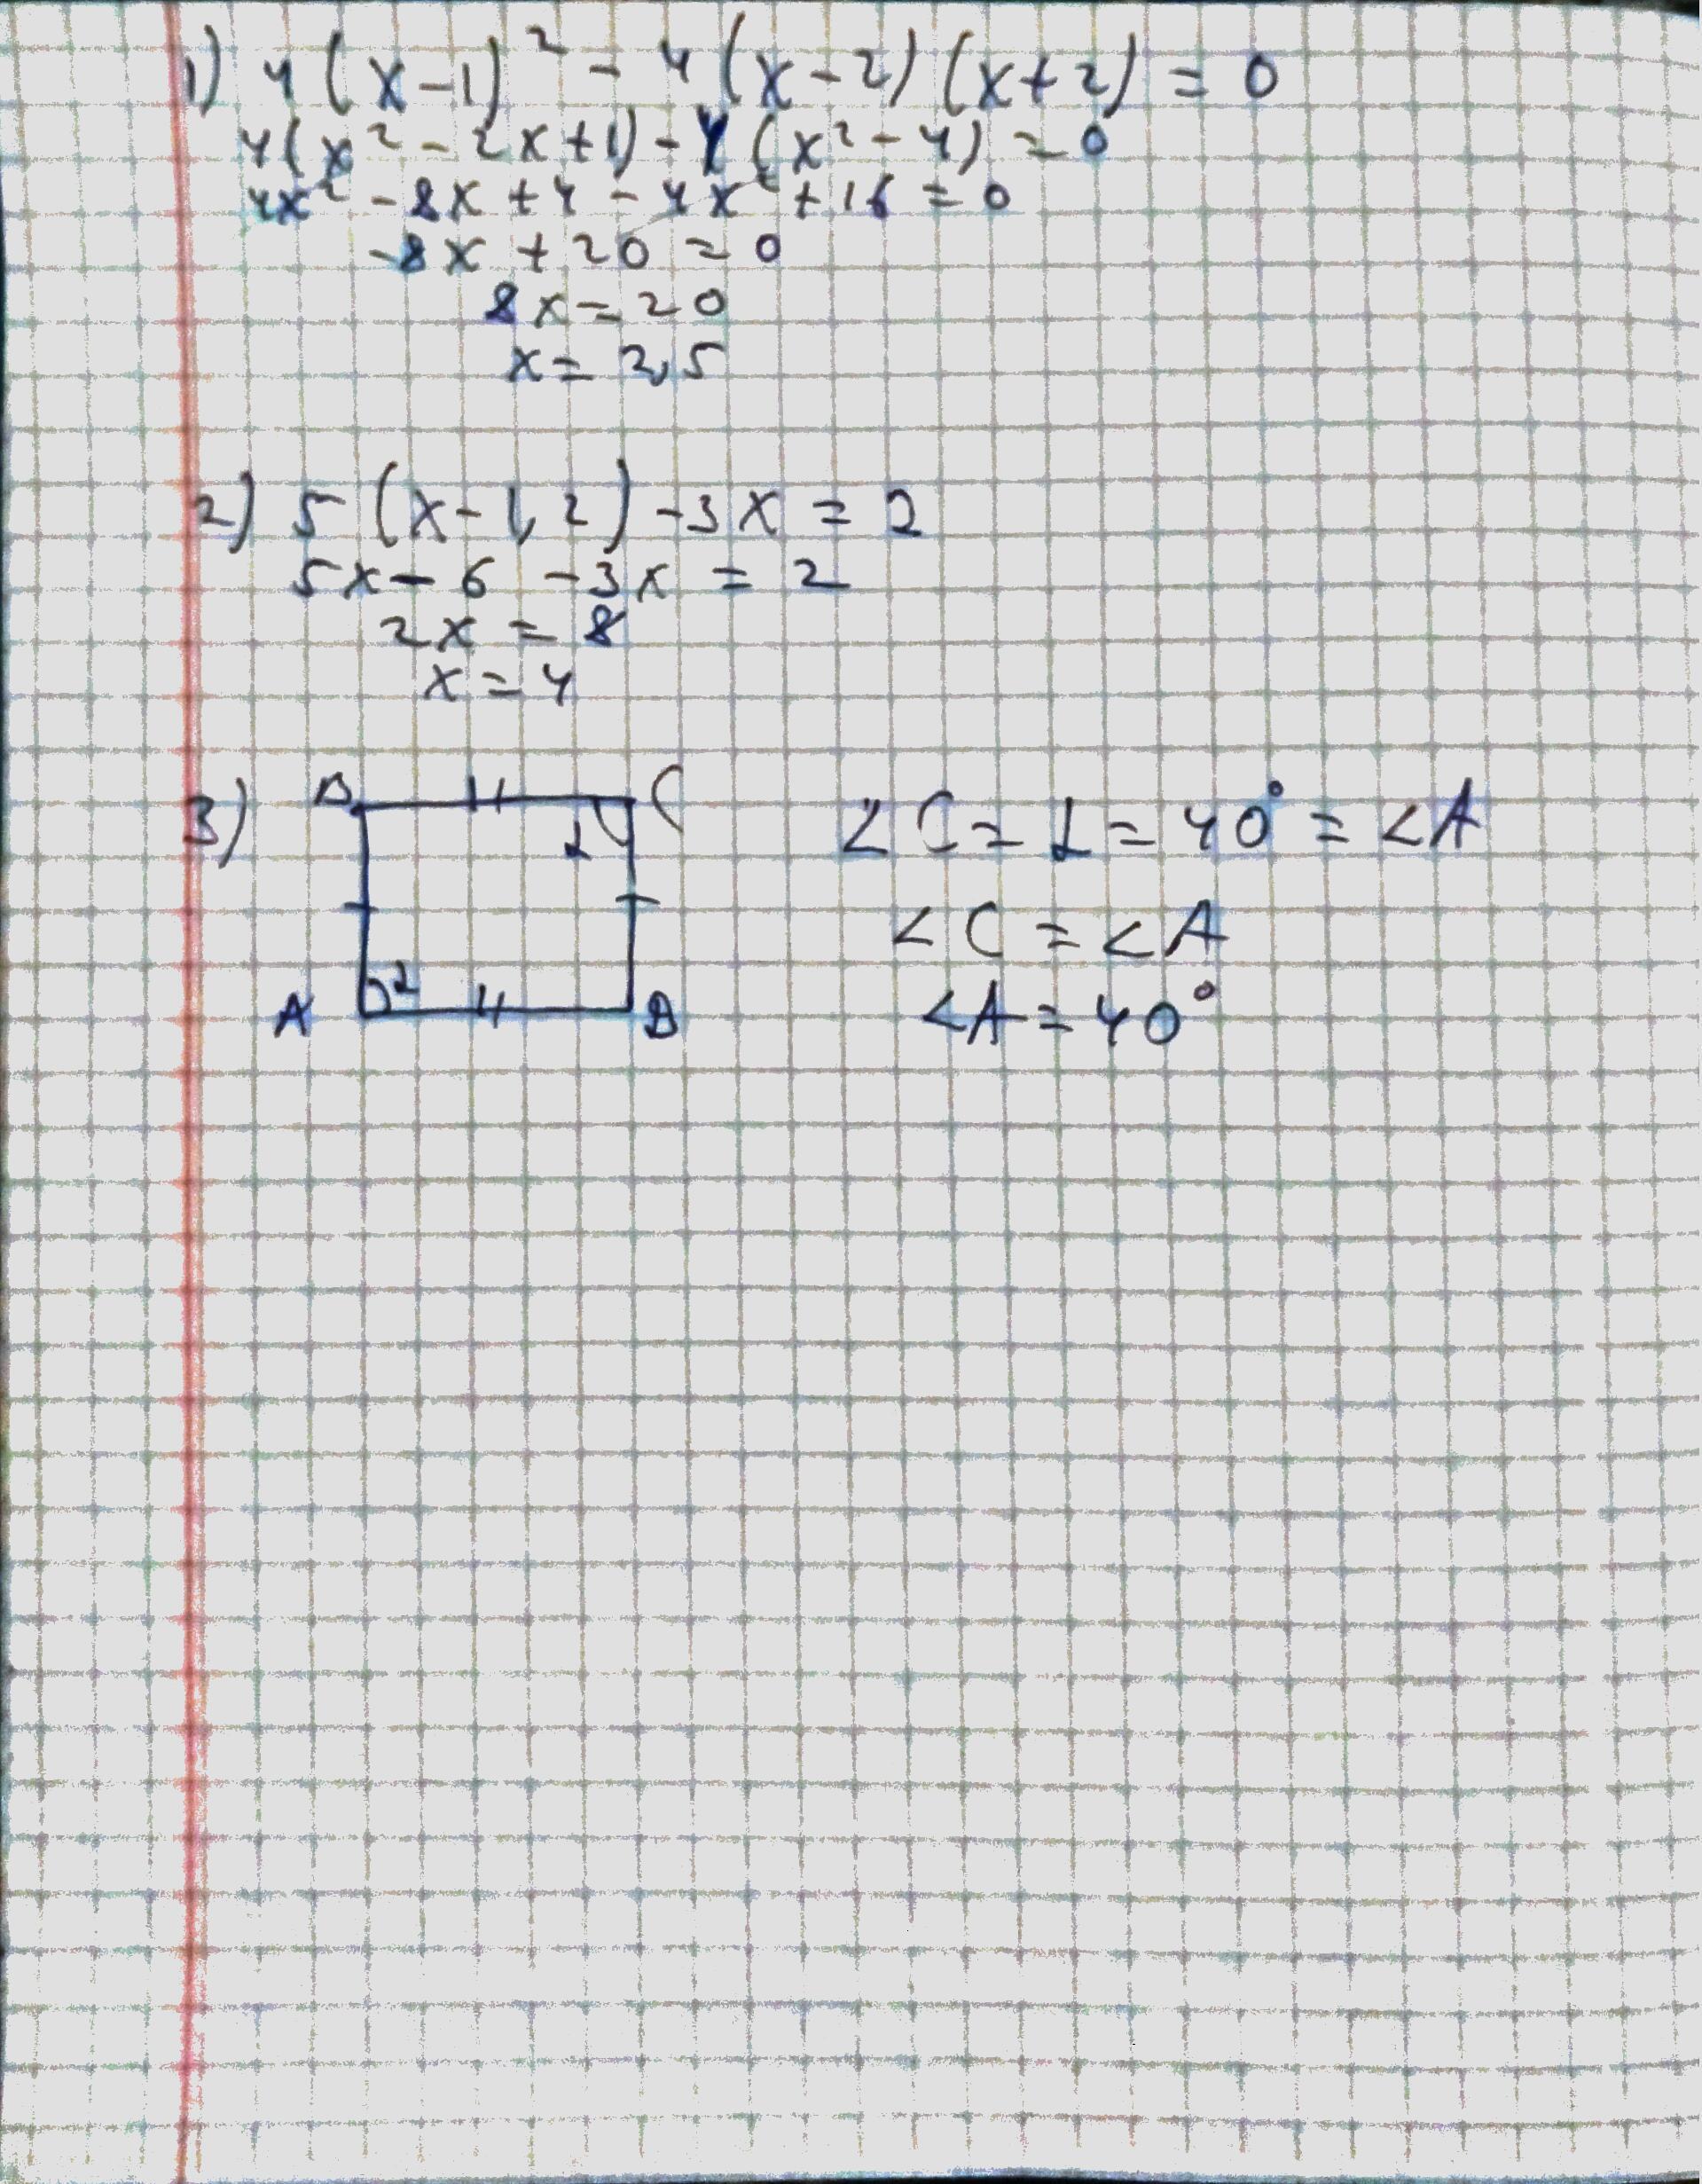 1) 4(x-1)² - 4(x-2)(x+2) = 0
4(x² - 2x+1) - 4(x² - 4) = 0
4x² - 8x + 4 - 4x² + 16 = 0
-8x + 20 = 0
8x = 20
x = 2,5
2) 5(x-1,2) - 3x = 2
5x - 6 - 3x = 2
2x = 8
x = 4
3) B C
2
2
A B
∠C = L = 40° = ∠A
∠C = ∠A
∠A = 40°